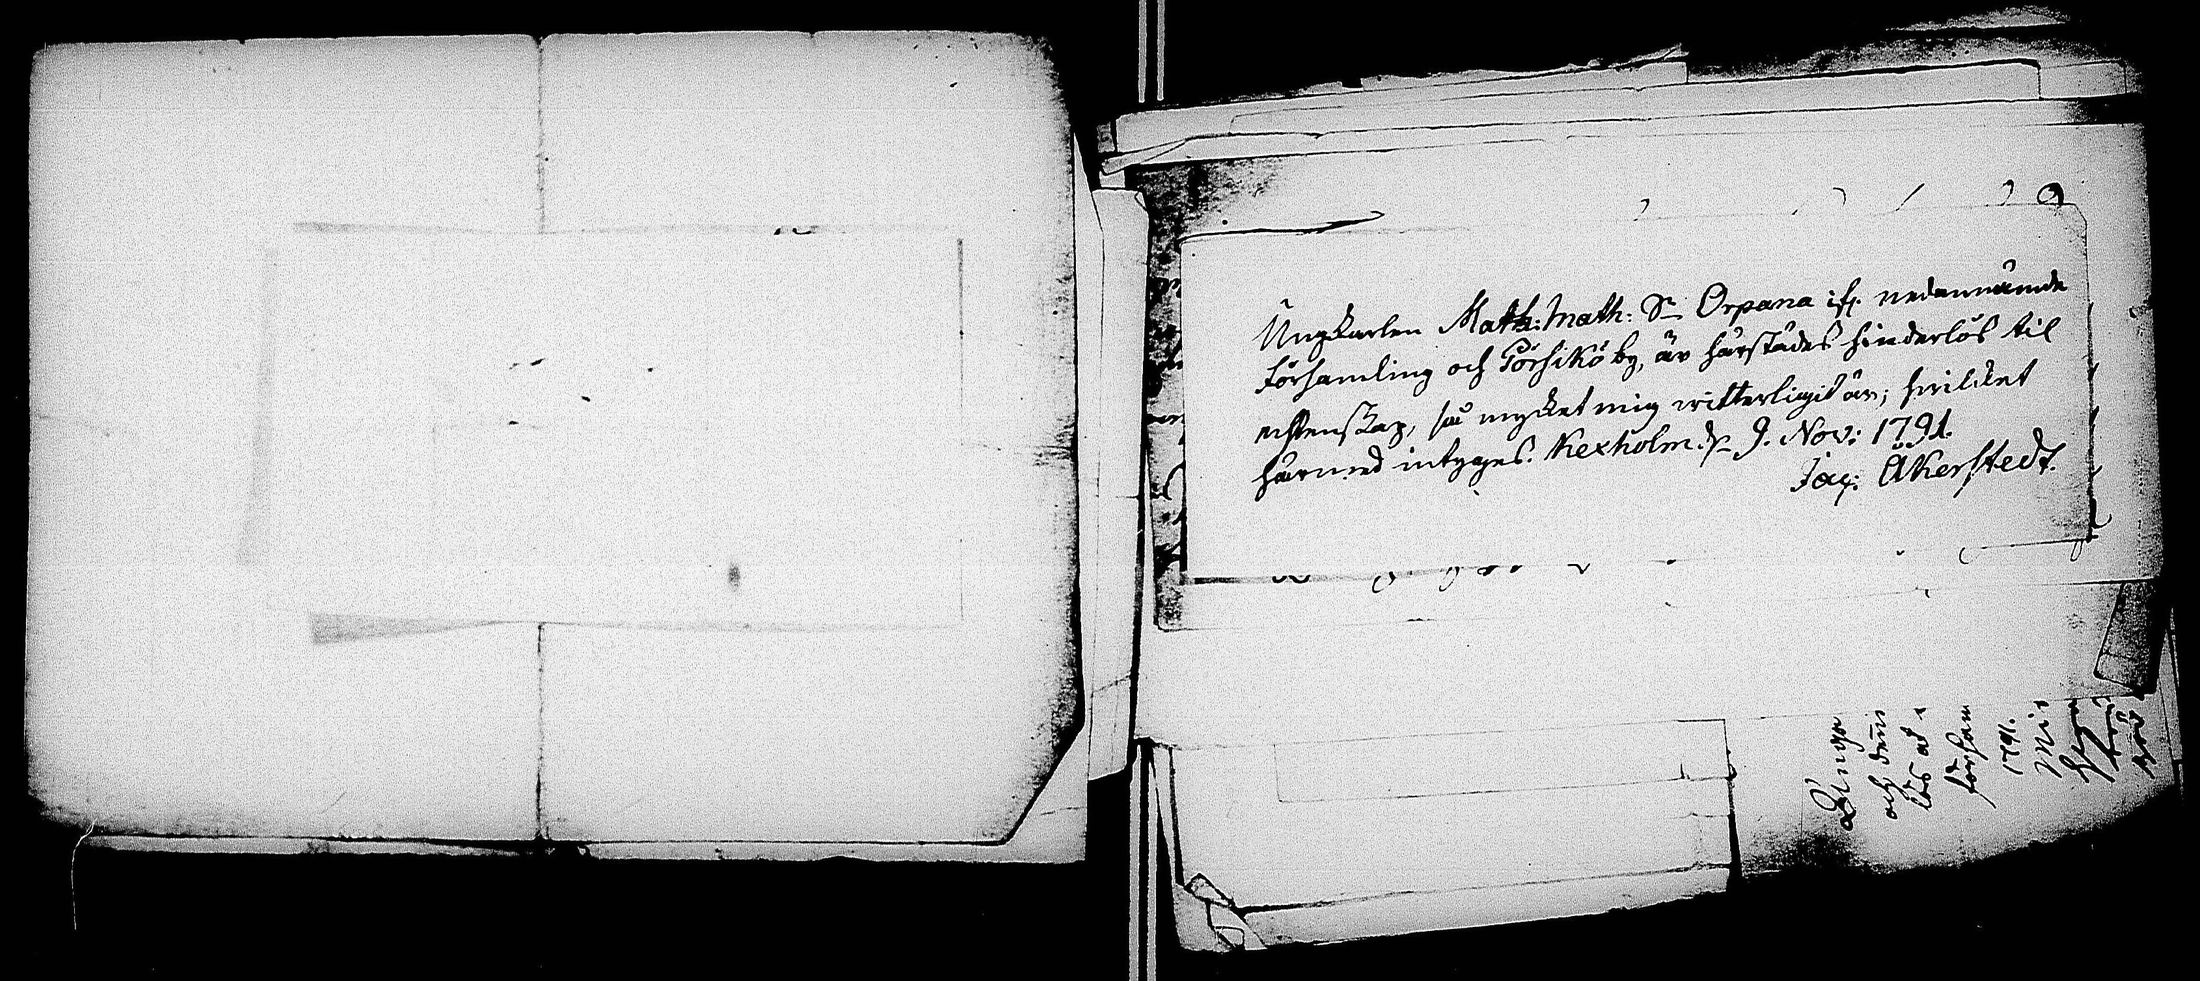 Ungkarlen Math: Math: Sn Orpana ifr. nedannämde
församling och Pörhikö by, är härstädes hinderlös til
echtenskap, så mycket mig witterligit är; hvilcket
härmed intyges. Kexholm dn 9. Nov: 1791.
Jac: Åkerstedt.
och
församl
1791.